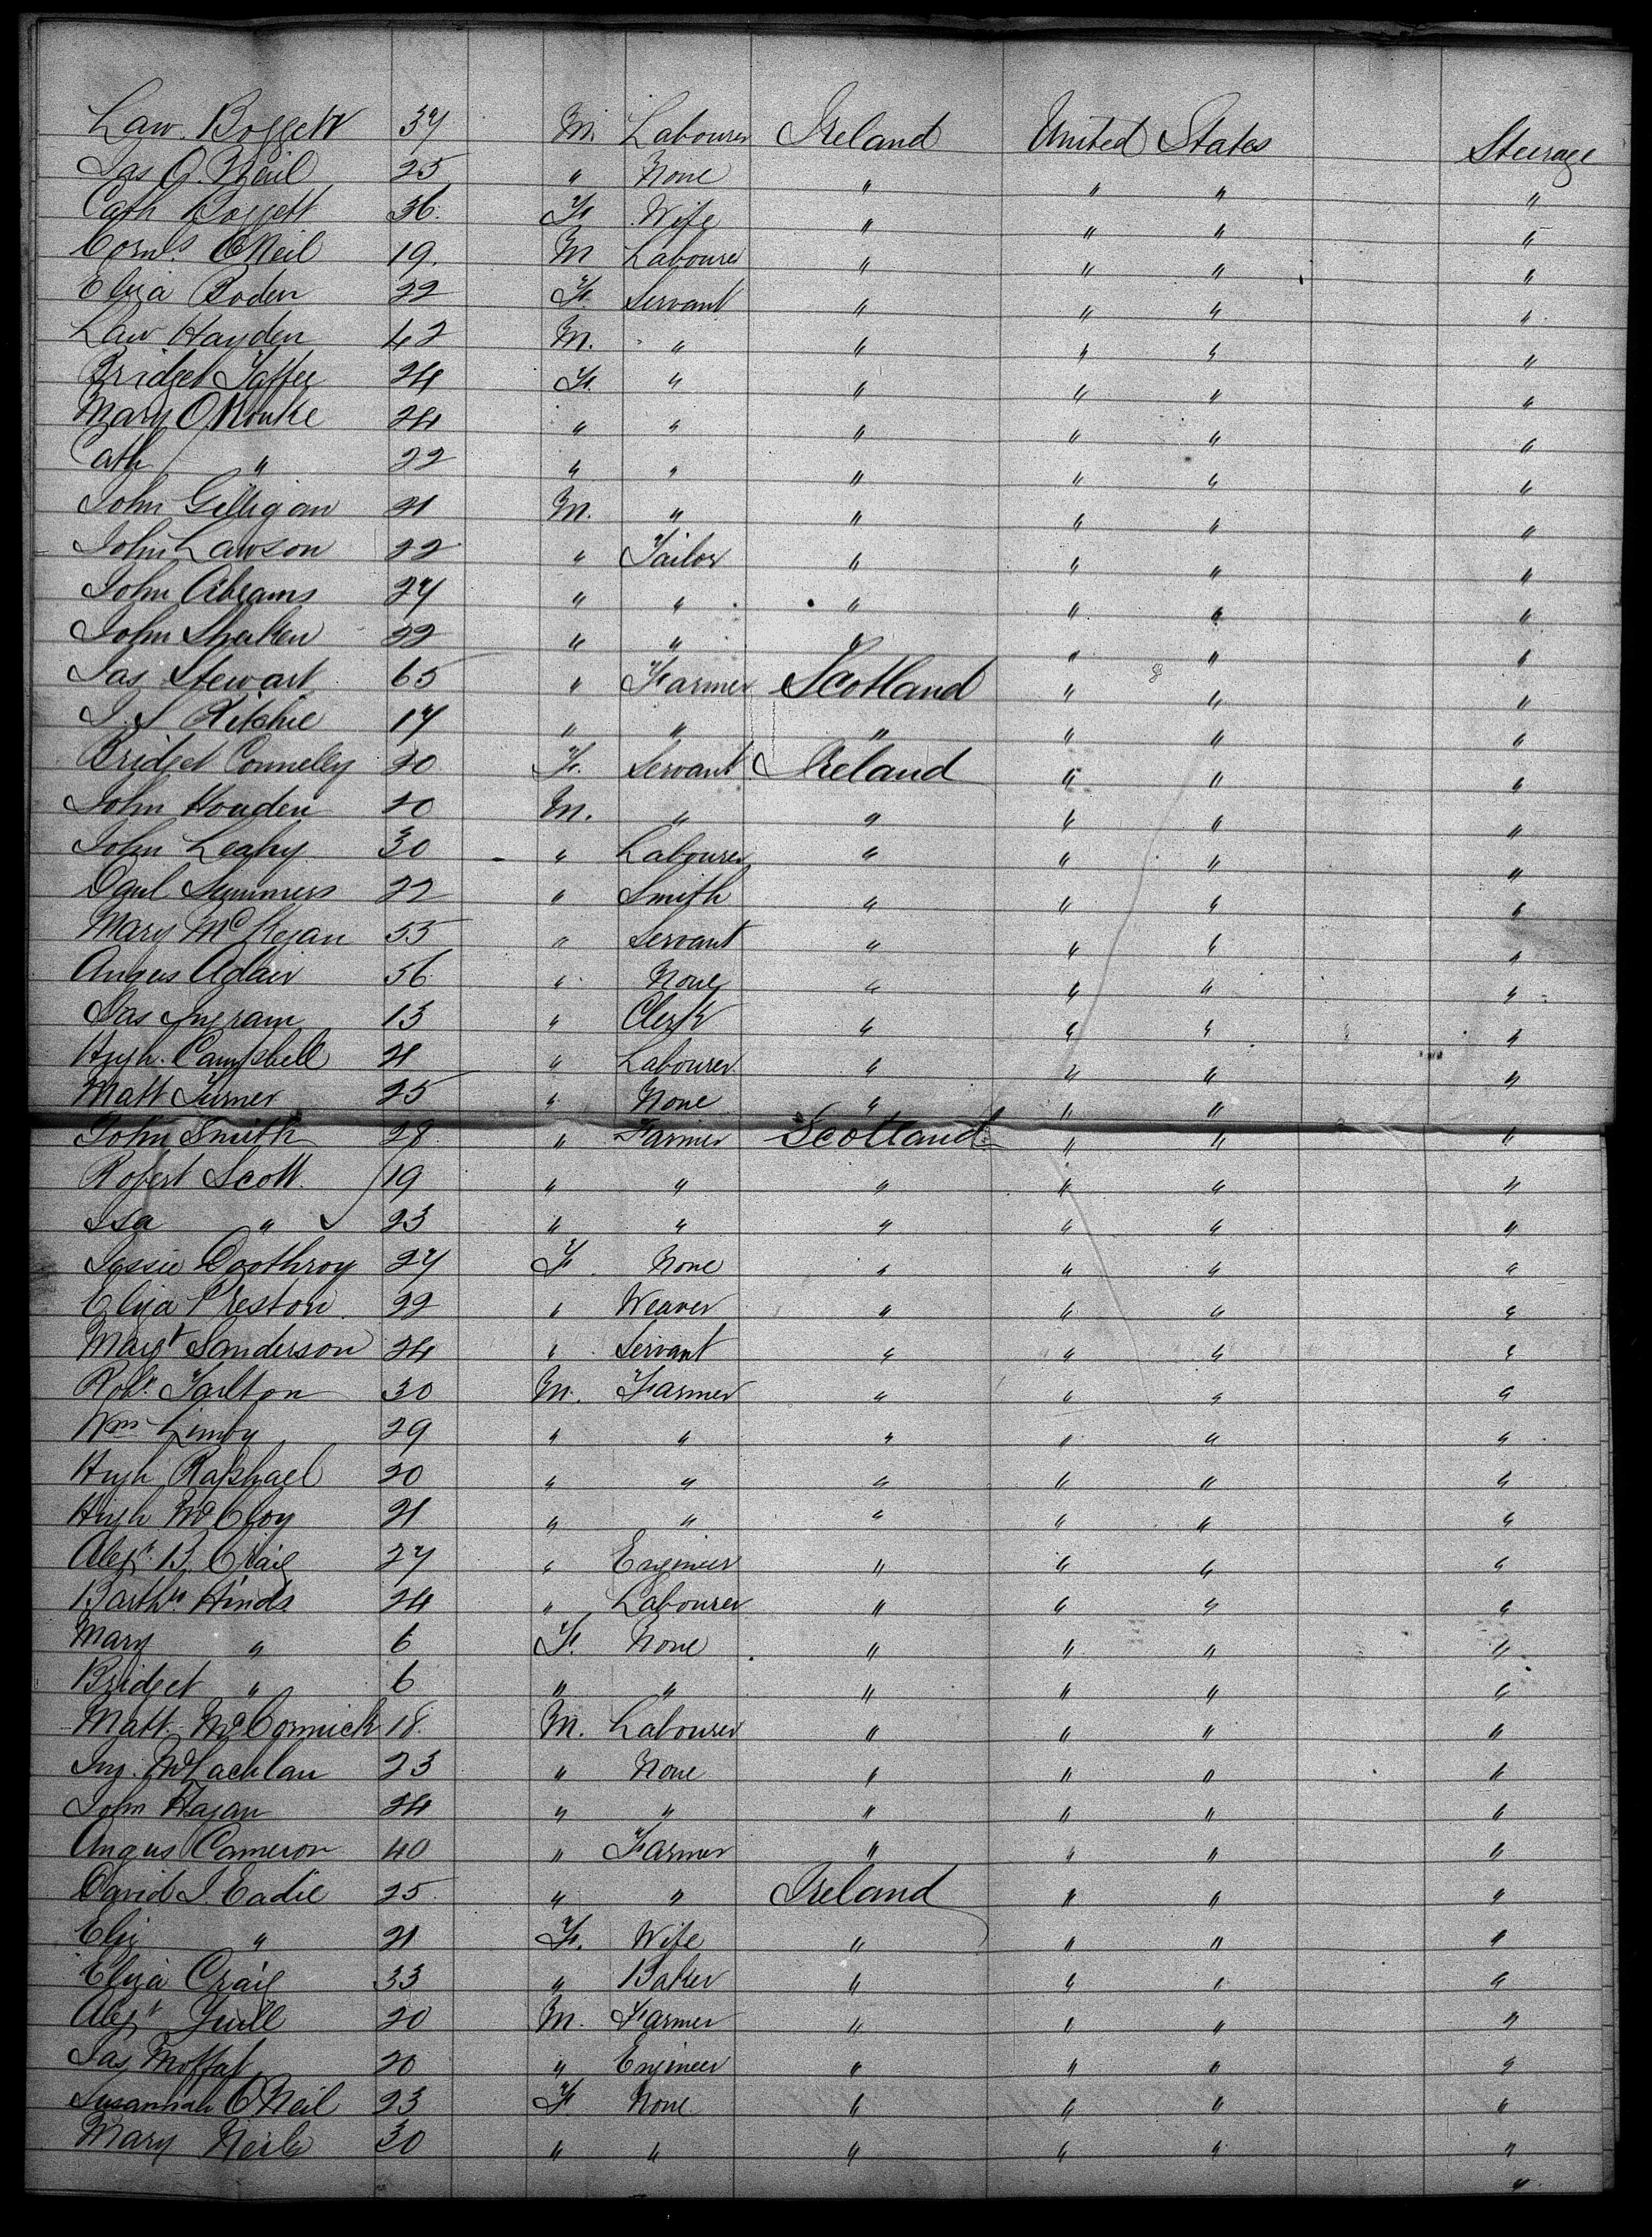 Law. Boggett 37 M. Labourer Ireland United States Steerage
Jas O. Neil 25 " None " " " "
Cath Boggett 36. F. Wife " " " "
Corns. O'Neil 19. M Labourer " " " "
Eliza Boden 22 F. Servant " " " "
Law Hayden 42 M. " " " " "
Bridget Taffee 24 F. " " " " "
Mary O'Rouke 24 " " " " " "
Cath " 22 " " " " " "
John Gilligan 21 M. " " " " "
John Lawson 22 " Tailor " " " "
John Abrams 27 " " " " " "
John Sheken 22 " " " " " "
Jas Stewart 65 " Farmer Scotland " " "
J. S Ritchie 17 " " " " " "
Bridget Connelly 20 F. Servant Ireland " " "
John Houden 20 M. " " " " "
John Leahy 30 " Labourer " " " "
Danl Summers 22 " Smith " " " "
Mary McGlegan 55 " Servant " " " "
Angus Adair 56 " None " " " "
Jas Ingram 13 " Clerk " " " "
Hugh. Campbell 21 " Labourer " " " "
Matt Turner 25 " None " " "
John Smith 28 " Farmer Scotland " " "
Robert Scott. 19 " " " " " "
Isa " 23 " " " " " "
Jessie Doothroy 27 F. None " " " "
Eliza Preston 22 " Weaver " " " "
Margt Sanderson 24 " Servant " " " "
Robt. Tarlton 30 M. Farmer " " " "
Wm Limby 29 " " " " " "
Hugh Raphael 20 " " " " " "
Hugh McCloy 21 " " " " " "
Alexr. B. Craig 27 " Engineer " " " "
Barthw. Hinds 24 " Labourer " " " "
Mary " 6 F. None " " " "
Bridget " 6 " " " " " "
Matt. McCormick 18. M. Labourer " " " "
Ing. McLachlan 23 " None " " " "
John Hagan 24 " " " " " "
Angus Cameron 40 " Farmer " " " "
David J. Eadie 25. " " Ireland " " "
Eliz " 21 F. Wife " " " "
Eliza Craig 33 " Baker " " " "
Alexr Yuill 20 M. Farmer " " " "
Jas Moffat 20 " Engineer " " " "
Susannah O'Neil 23 F. None " " " "
Mary Neils 30 " " " " " "
"